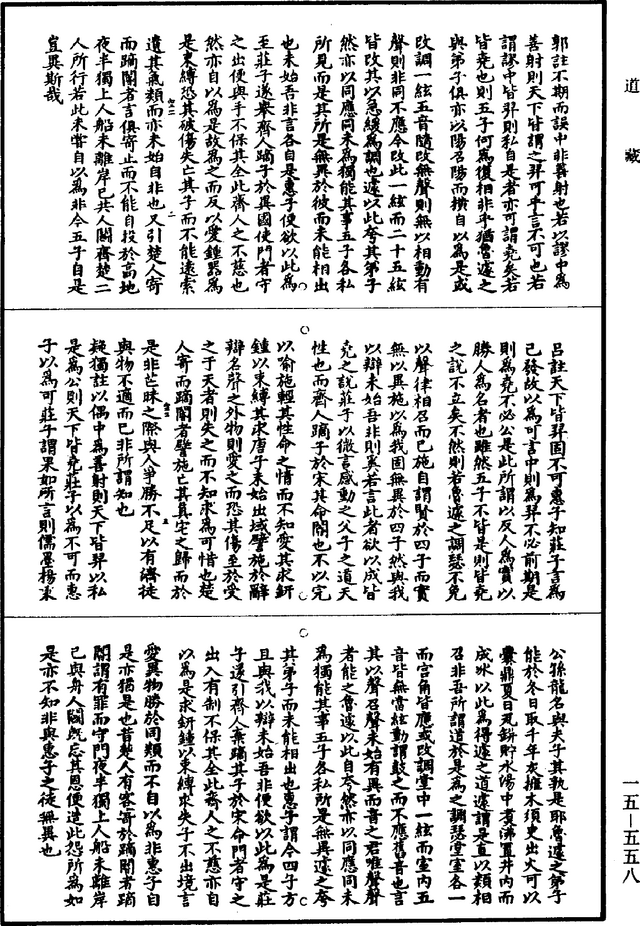 道藏
郭註不期而誤中非善射也若以謬中為
善射則天下皆謂之羿可乎言不可也若
謂謬中皆羿則私自是者亦可謂堯矣若
皆堯也則五子何為復相非乎猶魯遽之
與弟子俱亦以陽召陽而橫自以為是或
改調一絃五音隨改無聲則無以相動有
聲則非同不應今改此一絃而二十五絃
皆改其以急緩為調也遽以此夸其弟子
然亦以同應同未為獨能其事五子各私
所見而是其所是無異於彼而未能相出
也未始吾非言各自是惠子便欲以此為
至莊子遂舉齊人蹢子於異國使門者守
之出便與手不保其全此齊人之不慈也
然亦自以為是故為之而反以愛鍾器為
是束縛恐其破傷失亡其子而不能遠索
遺其氣類而亦未始自非也又引楚人寄
而蹢閽者言俱寄止而不能自投於高地
夜半獨上人船未離岸已共人鬭齊楚二
人所行若此未嘗自以為非今五子自是
豈異斯哉
呂註天下皆羿固不可惠子知莊子言為
已發故以為可言中則為羿不必前期是
則為堯不必公是此所謂以反人為實以
勝人為名者也雖然五子不皆是則皆堯
之說不立矣不然則若魯遽之調瑟不免
以聲律相召而已施自謂賢於四子而實
無以異施以為我固無異於四子然與我
以辯未始吾非則奚若言此者欲以成皆
堯之說莊子以微言感動之父子之道天
性也而齊人蹢子於宋其命閽也不以完
以喻施輕其性命之情而不知愛其求鈃
鍾以束縛其求唐子未始出域譬施於辭
辯名聲之外物則愛之而恐其傷至於受
之于天者則失之而不知求為可惜也楚
人寄而蹢閽者譬施亡其真宅之歸而於
是非芒昧之際與人爭勝不足以有濟徒
與物不適而已非所謂知也
疑獨註以偶中為善射則天下皆羿以私
是為公則天下皆堯莊子以為不可而惠
子以為可莊子謂果如所言則儒墨楊秉
公孫龍名與夫子其孰是耶魯遽之弟子
能於冬日取千年灰擁木須臾出火可以
爨鼎夏日瓦缾貯水湯中煑沸置井內而
成冰以此為得遽之道遽謂是直以類相
召非吾所謂道於是為之調瑟堂室各一
而宮角皆應或改調堂中一絃而室內五
音皆無當絃動謂鼓之而不應舊音也言
其以聲召聲未始有異而音之君唯聲聲
者能之魯遽以此自夸然亦以同應同未
為獨能其事五子各私所是無異遽之夸
其弟子而未能相出也惠子謂今四子方
且與我以辯未始吾非便欲以此為是莊
子遂引齊人棄蹢其子於宋命門者守之
出入有制不保其全此齊人之不慈亦自
以為是求鈃鍾以束縛求失子不出境言
愛異物勝於同類而不自以為非惠子自
是亦猶是也昔楚人有客寄於蹢閽者蹢
閽謂有罪而守門夜半獨上人船未離岸
已與舟人鬭既忘其恩便造此怨所為如
是亦不知非與惠子之徒無異也
一五—五五八